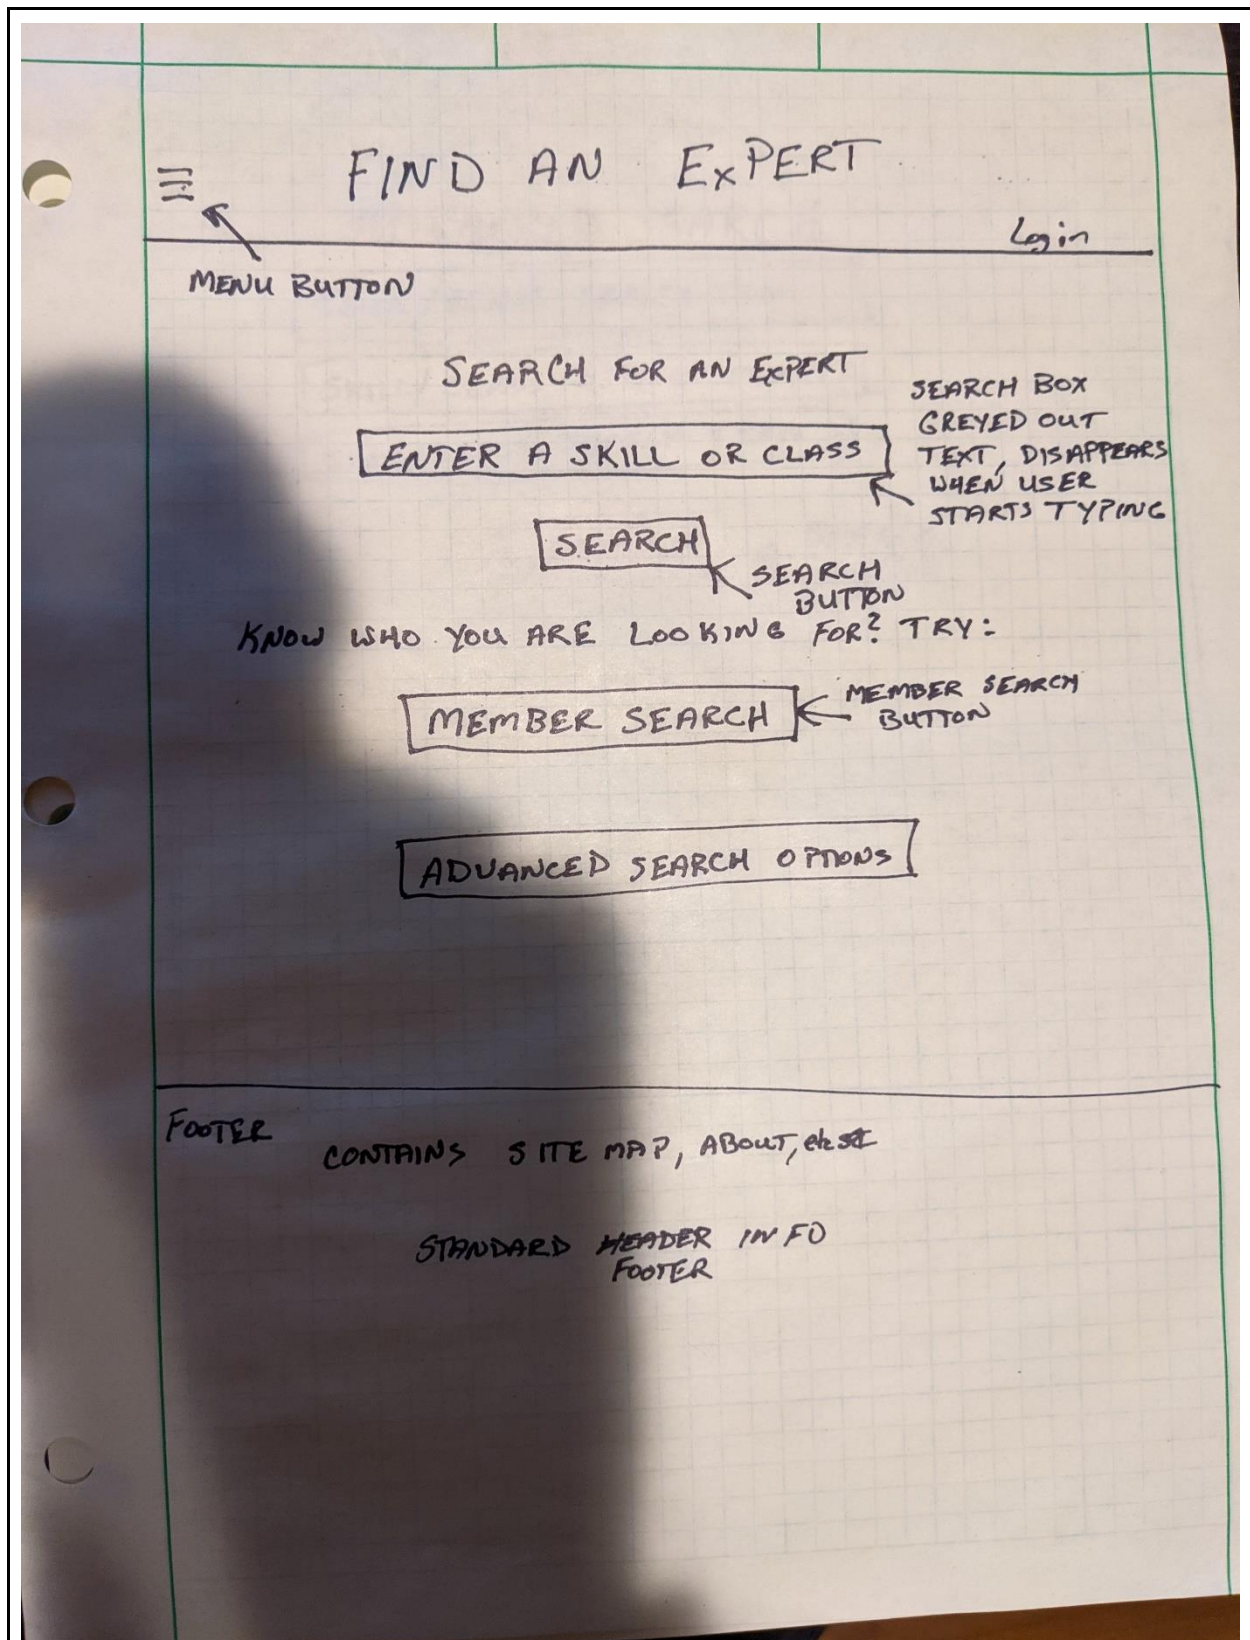 FIND AN ExPERT
Login
MENU BUTTON
SEARCH FOR AN ExPERT
ENTER A SKILL OR CLASS
SEARCH BOX
GREYED OUT
TEXT, DISAPPEARS
WHEN USER
STARTS TYPING
SEARCH
SEARCH
BUTTON
KNOW WHO YOU ARE LOOKING FOR? TRY:
MEMBER SEARCH
MEMBER SEARCH
BUTTON
ADVANCED SEARCH OPTIONS
FOOTER
CONTAINS SITE MAP, ABOUT, etc
STANDARD HEADER INFO
FOOTER